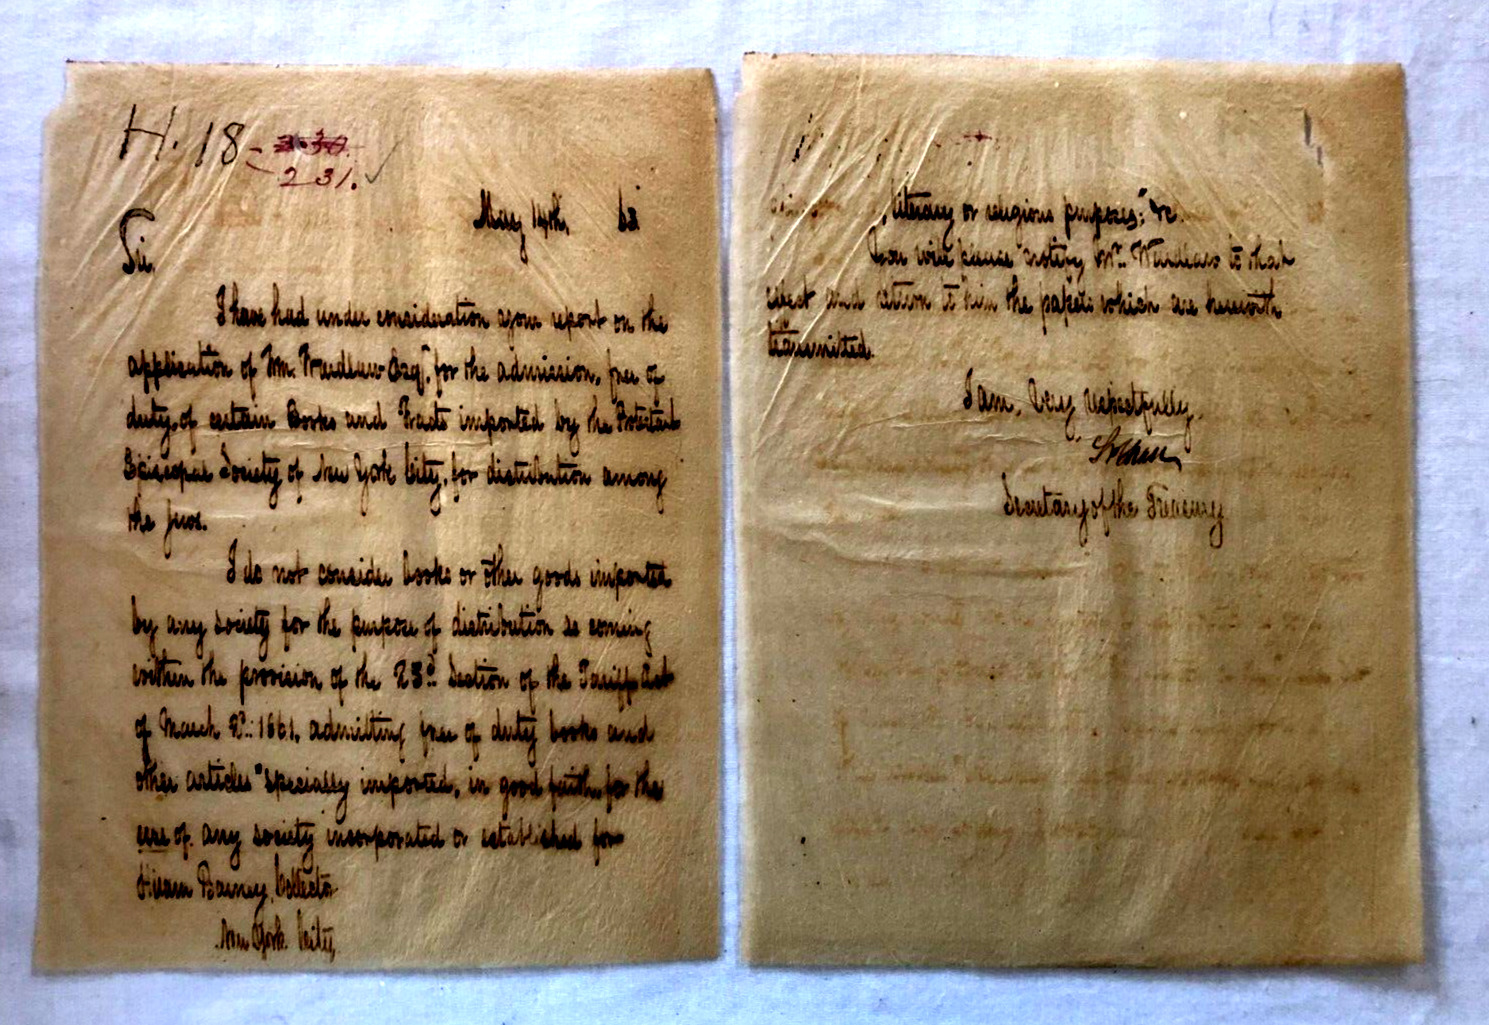 H. 18 - 2.30.
2 31. ✓
May 14th, 63
Sir.
I have had under consideration your report on the
application of Wm. Wardlaw Esqr. for the admission, free of
duty, of certain Books and Tracts imported by the Protestant
Episcopal Society of New York City, for distribution among
the Jews.
I do not consider books or other goods imported
by any society for the purpose of distribution as coming
within the provision of the 23d Section of the Tariff Act
of March 2d: 1861, admitting free of duty books and
other articles "specially imported, in good faith, for the
use of any society incorporated or established for
Hiram Barney, Collector
New York City,
literary or religious purposes," &c.
You will please notify Mr. Wardlaw to that
effect and return to him the papers which are herewith
transmitted.
I am, Very respectfully,
Secretary of the Treasury